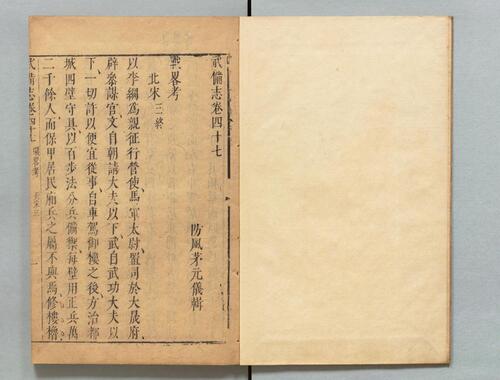 武備志卷四十七
防風茅元儀輯
戰畧考
北宋三終
以李綱為親征行營使馬軍太尉置司於大晟府
辟叅謀官文自朝請大夫以下武自武功大夫以
下一切許以便宜從事自車駕御樓之後方治都
城四壁守具以百步法分兵備禦每壁用正兵萬
二千餘人而保甲居民廂兵之屬不與焉修樓櫓
武備志卷四十七
戰畧考
一